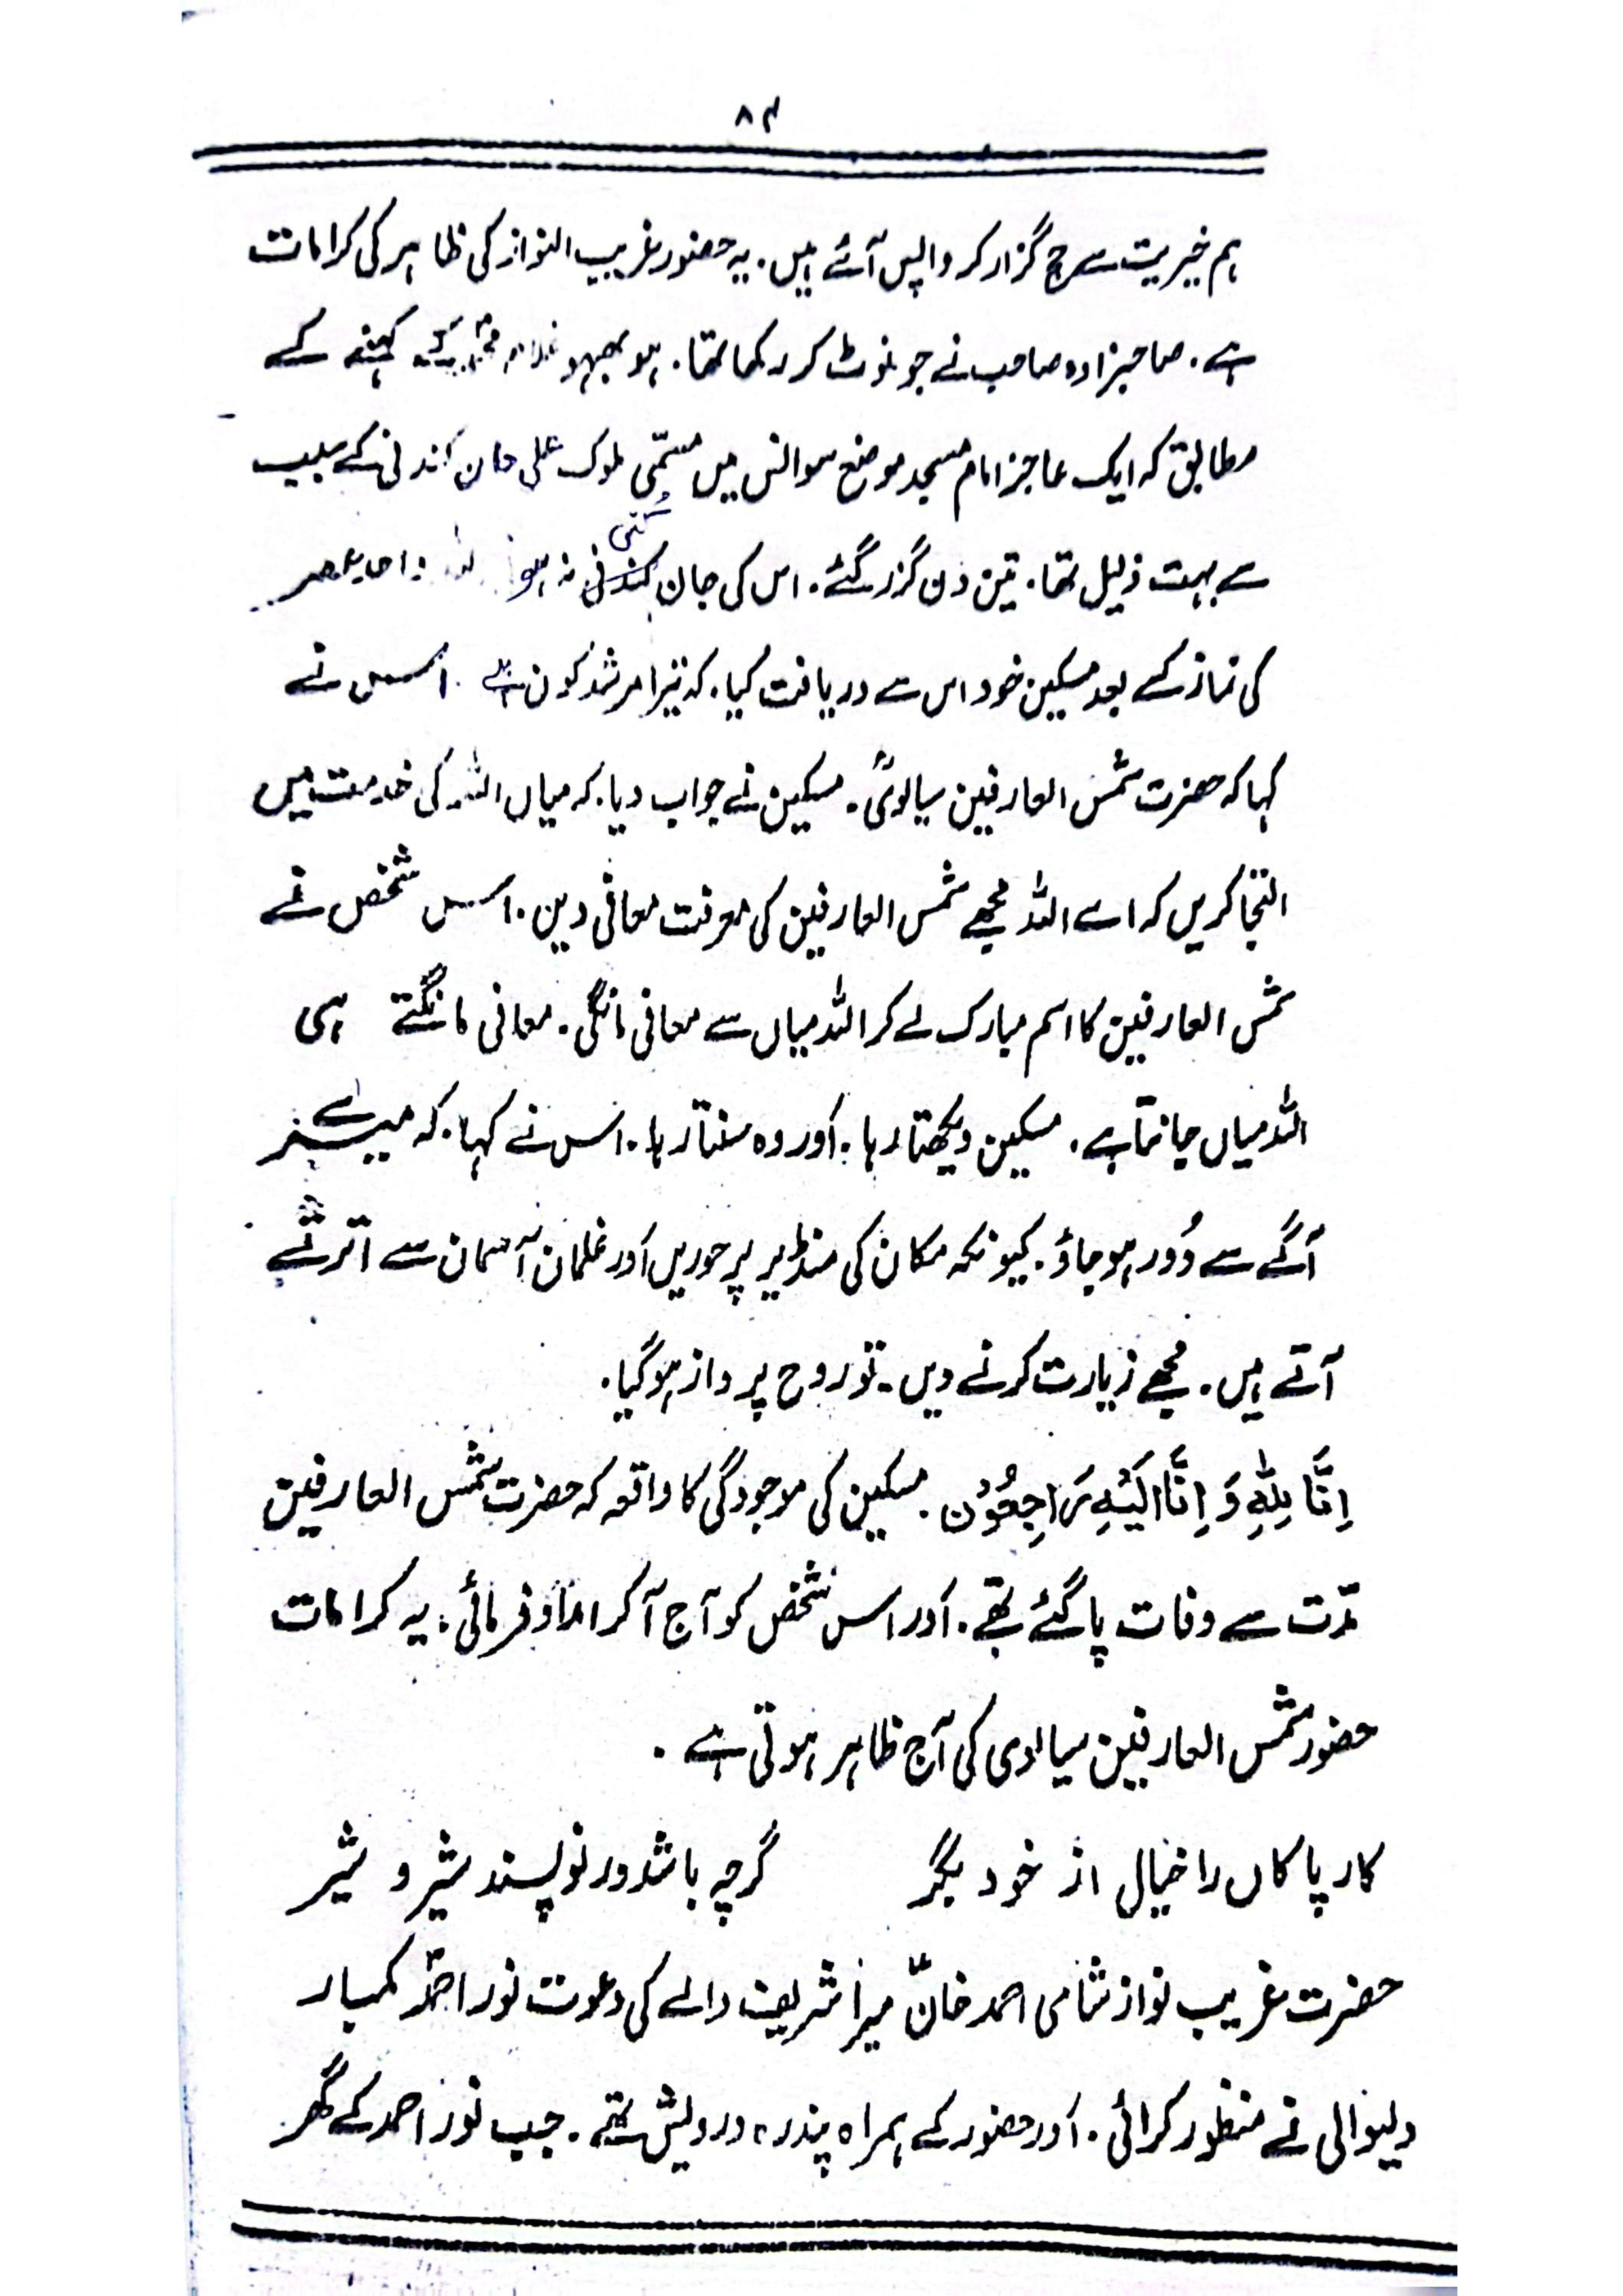 ۸۴
ہم خیریت سے حج گزار کر واپس آئے ہیں۔ یہ حضور غریب النواز کی ظاہر کی کرامات
ہے۔ صاحبزادہ صاحب نے جو نوٹ کر رکھا تھا۔ ہو بھہو غلام محمد کے کہنے کے
مطابق کہ ایک عاجز امام مسجد موضع سوالس میں مسمّی ملوک علی جان کندنی کے سبب
سے بہت ذلیل تھا۔ تین دن گزر گئے۔ اس کی جان کندنی نہ ہو
کی نماز کے بعد مسکین خود اس سے دریافت کیا۔ کہ تیرا مرشد کون ہے۔ اس نے
کہا کہ حضرت شمس العارفین سیالویؒ۔ مسکین نے جواب دیا۔ کہ میاں اللہ کی خدمت میں
التجا کریں کہ اے اللہ مجھے شمس العارفین کی معرفت معافی دیں۔ اس شخص نے
شمس العارفین کا اسم مبارک لے کر اللہ میاں سے معافی مانگی۔ معافی مانگتے ہی
اللہ میاں جانتا ہے۔ مسکین دیکھتا رہا۔ اور وہ سنتا رہا۔ اس نے کہا۔ کہ میرے
آگے سے دُور ہو جاؤ۔ کیونکہ مکان کی منڈیر پر حوریں اور غلمان آسمان سے اترتے
آتے ہیں۔ مجھے زیارت کرنے دیں۔ تو روح پرواز ہو گیا۔
اِنَّا لِلّٰہِ وَ اِنَّا اِلَیْہِ رَاجِعُوْن۔ مسکین کی موجودگی کا واقعہ کہ حضرت شمس العارفین
مدّت سے وفات پا گئے تھے۔ اور اس شخص کو آج آ کر امداد فرمائی۔ یہ کرامات
حضور شمس العارفین سیالوی کی آج ظاہر ہوتی ہے۔
کار پاکاں را خیال از خود مگیر گرچہ باشد در نوپسند شیر و شیر
حضرت غریب نواز شامی احمد خانؒ میرا شریف والے کی دعوت نور احمد کمہار
دلیوالی نے منظور کرائی۔ اور حضور کے ہمراہ پندرہ درویش تھے۔ جب نور احمد کے گھر